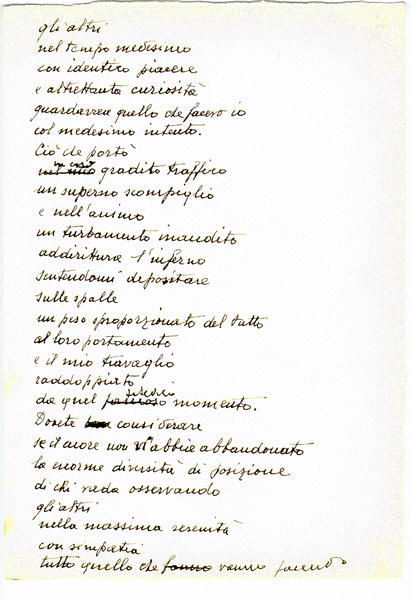 gli altri
nel tempo medesimo
con identico piacere
e altrettanta curiosità
guardavan quello che facevo io
col medesimo intento.
Ciò che portò
in così
nel mio gradito traffico
un superno scompiglio
e nell'animo
un turbamento inaudito
addirittura l'inferno
sentendomi depositare
sulle spalle
un peso sproporzionato del tutto
al loro portamento
e il mio travaglio
raddoppiato
da quel momento.
Dovete considerare
se il cuore non vi abbia abbandonato
la enorme diversità di posizione
di chi vada osservando
gli altri
nella massima serenità
con simpatia
tutto quello che fanno vanno facendo